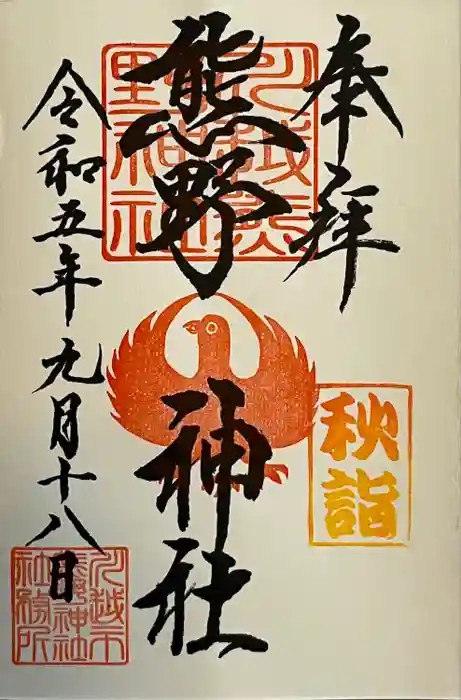 奉拝
川越熊野神社
熊野神社
秋詣
令和五年九月十八日
川越市熊野神社社務所